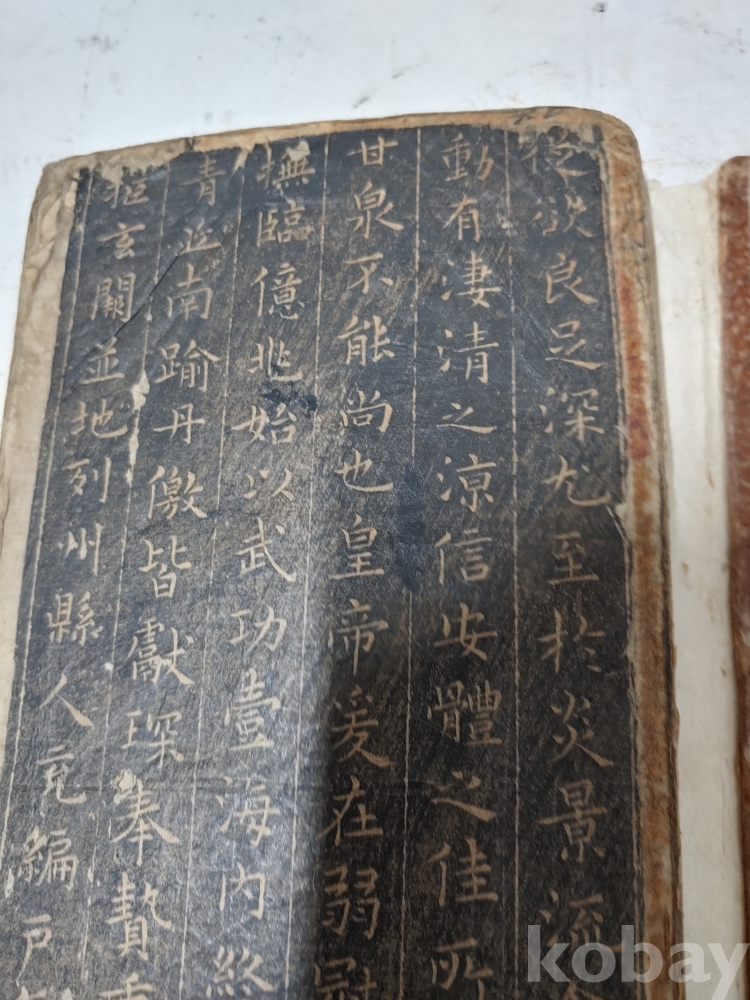 從欲良足深尤至於炎景流
動有淒清之涼信安體之佳所
甘泉不能尚也皇帝爰在弱冠
撫臨億兆始以武功壹海內終
青丘南踰丹儌皆獻琛奉贄重
拒玄闕並地列州縣人充編戶
kobay